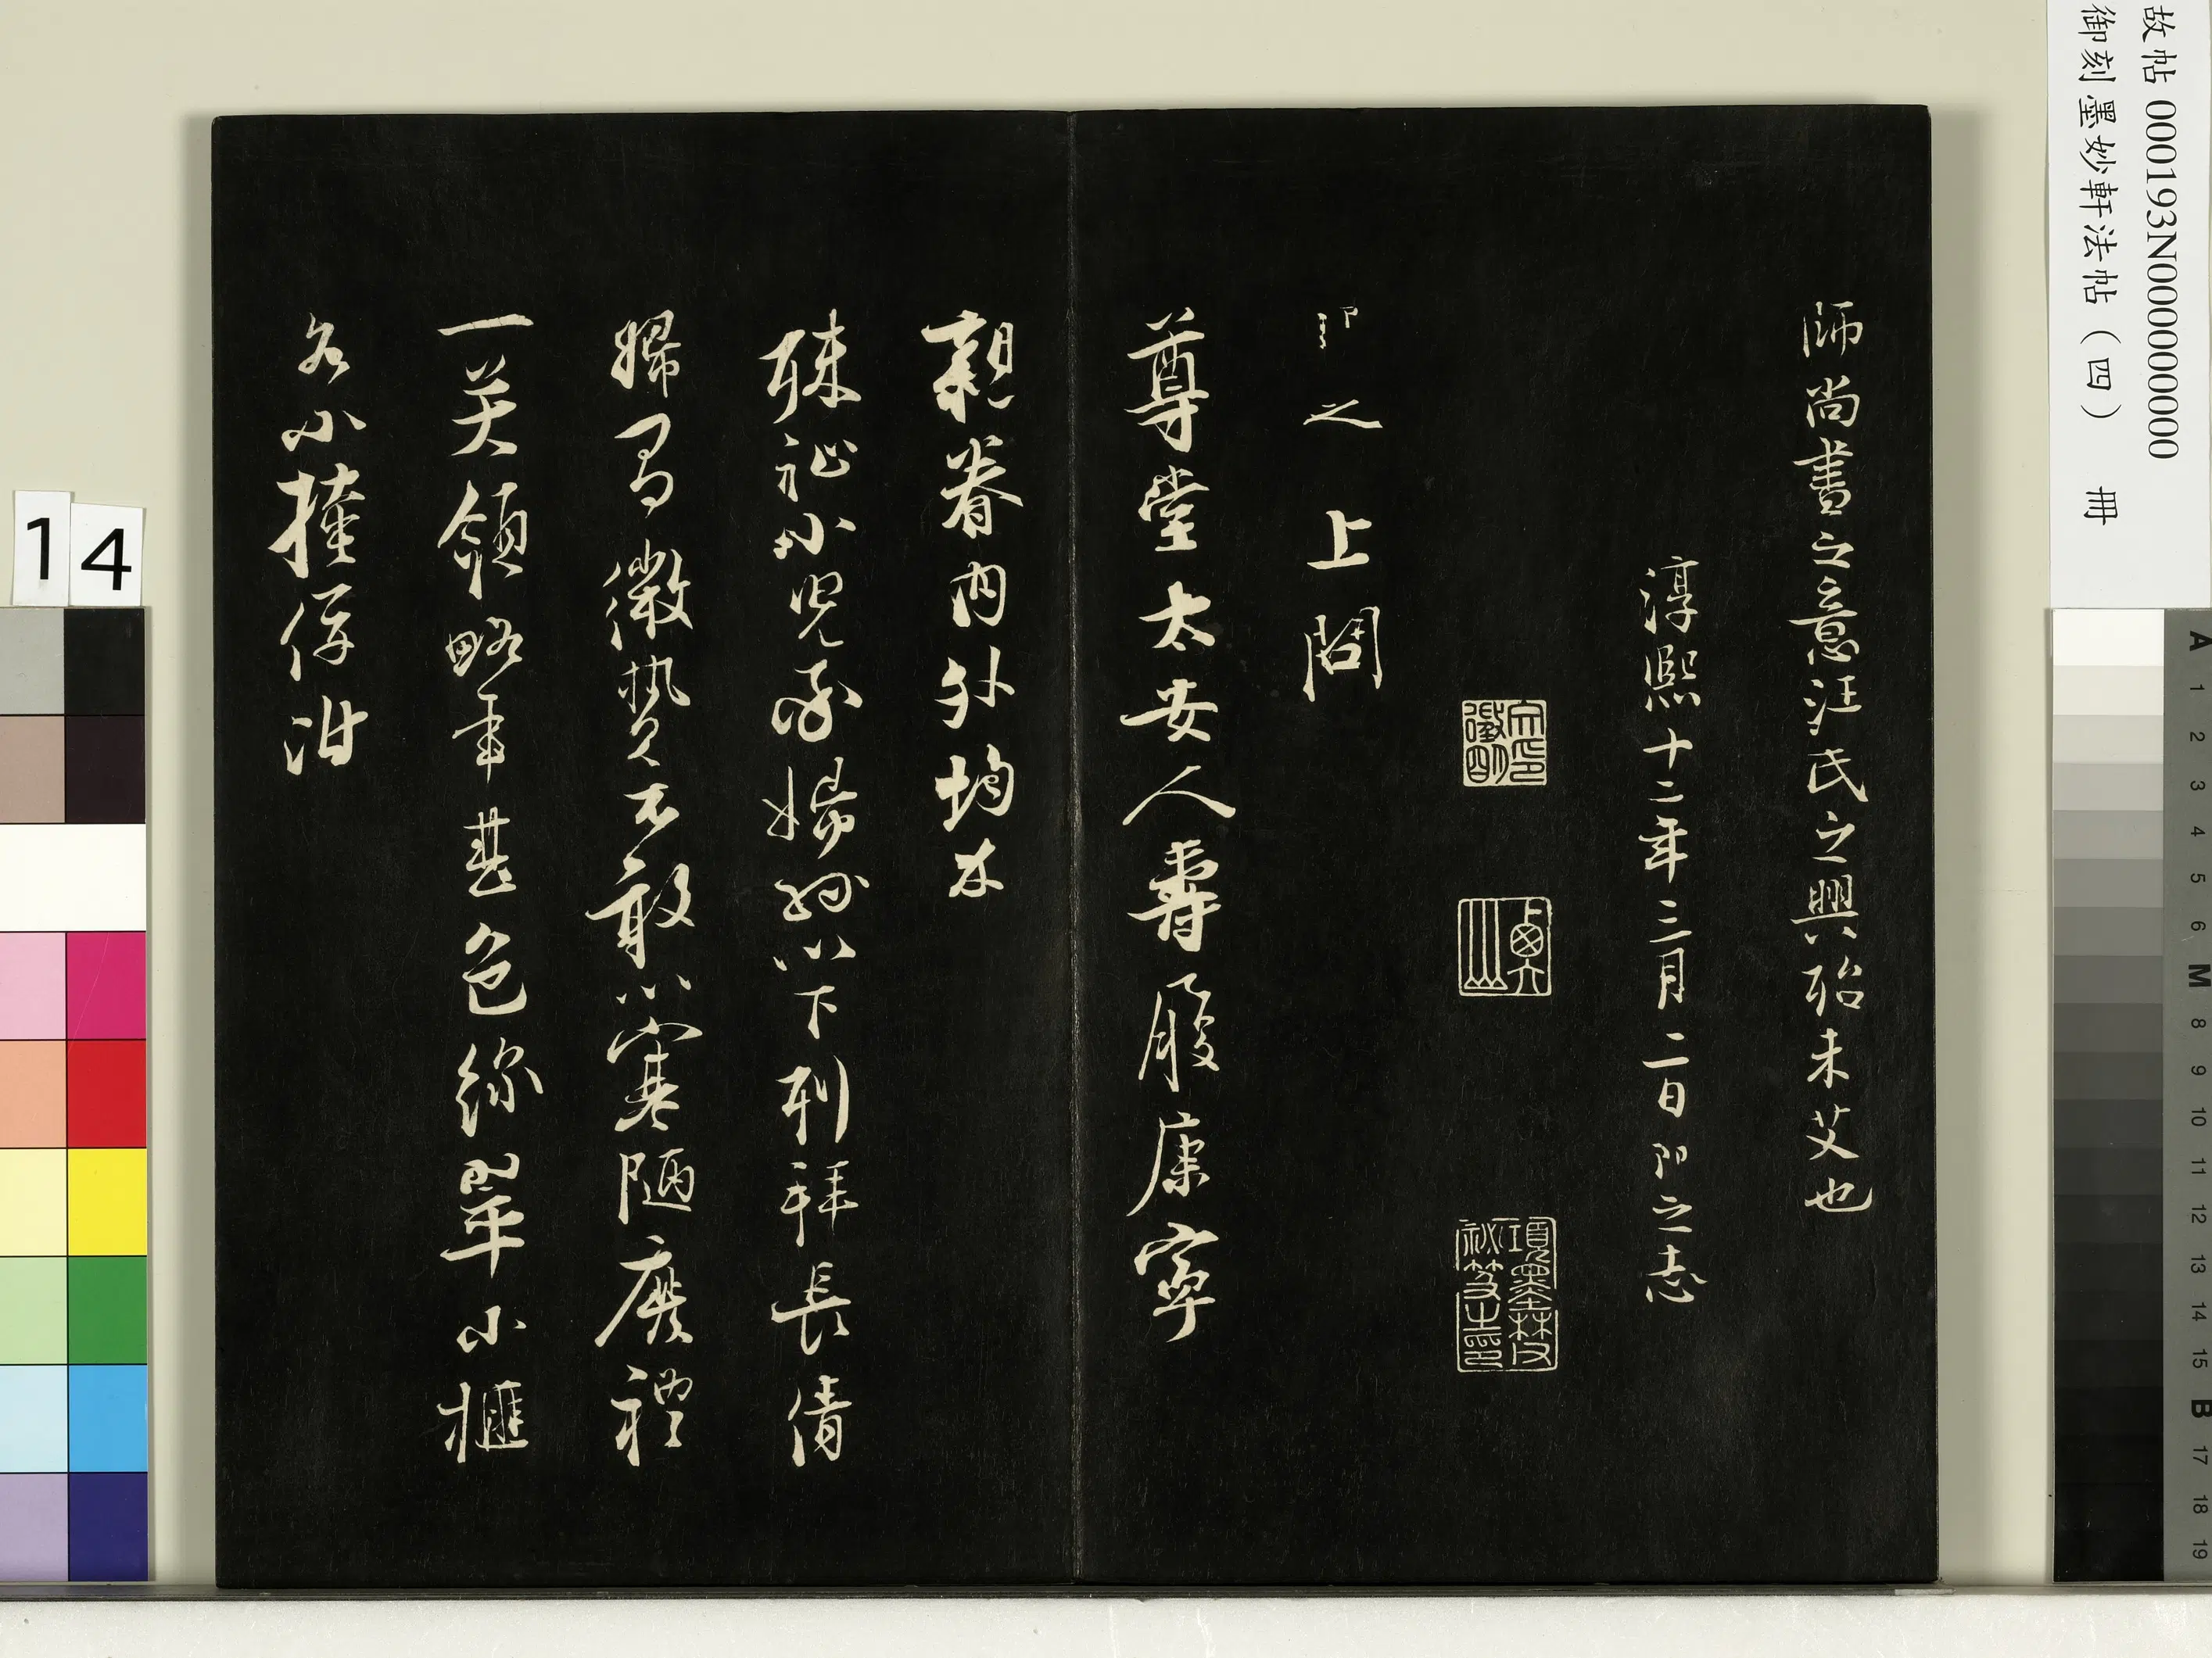 故帖 000193N000000000
御刻墨妙軒法帖(四) 冊
師尚書之意汪氏之興殆未艾也
淳熙十二年三月二日即之志
項墨林父秘笈之印
即之上問
尊堂太安人壽履康寧
親眷內外均介
殊祉小兒兒婦孫以下列拜長倩
婦歸微贄不敢以寒陋廢禮
一笑領略幸甚色綵單小榧
各小
14
A 1 2 3 4 5 6 M 8 9 10 11 12 13 14 15 B 17 18 19